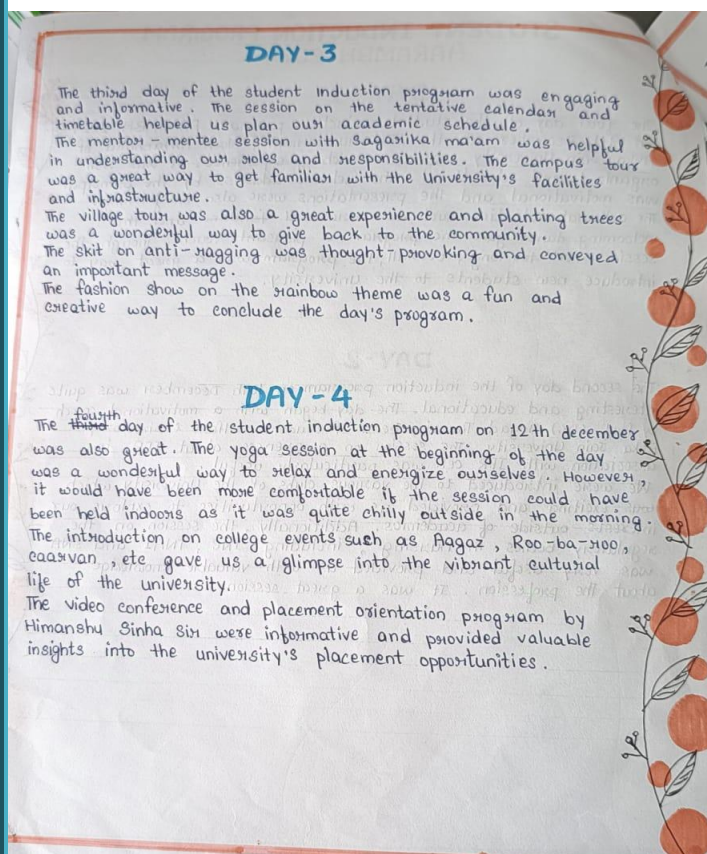 DAY-3
The third day of the student induction program was engaging
and informative. The session on the tentative calendar and
timetable helped us plan our academic schedule.
The mentor-mentee session with Sagarika ma'am was helpful
in understanding our roles and responsibilities. The campus tour
was a great way to get familiar with the University's facilities
and infrastructure.
The village tour was also a great experience and planting trees
was a wonderful way to give back to the community.
The skit on anti-ragging was thought-provoking and conveyed
an important message.
The fashion show on the rainbow theme was a fun and
creative way to conclude the day's program.
DAY-4
fourth
The third day of the student induction program on 12th december
was also great. The yoga session at the beginning of the day
was a wonderful way to relax and energize ourselves. However,
it would have been more comfortable if the session could have
been held indoors as it was quite chilly outside in the morning.
The introduction on college events such as Aagaz, Roo-ba-roo,
caarvan, etc gave us a glimpse into the vibrant cultural
life of the university.
The video conference and placement orientation program by
Himanshu Sinha Sir were informative and provided valuable
insights into the university's placement opportunities.